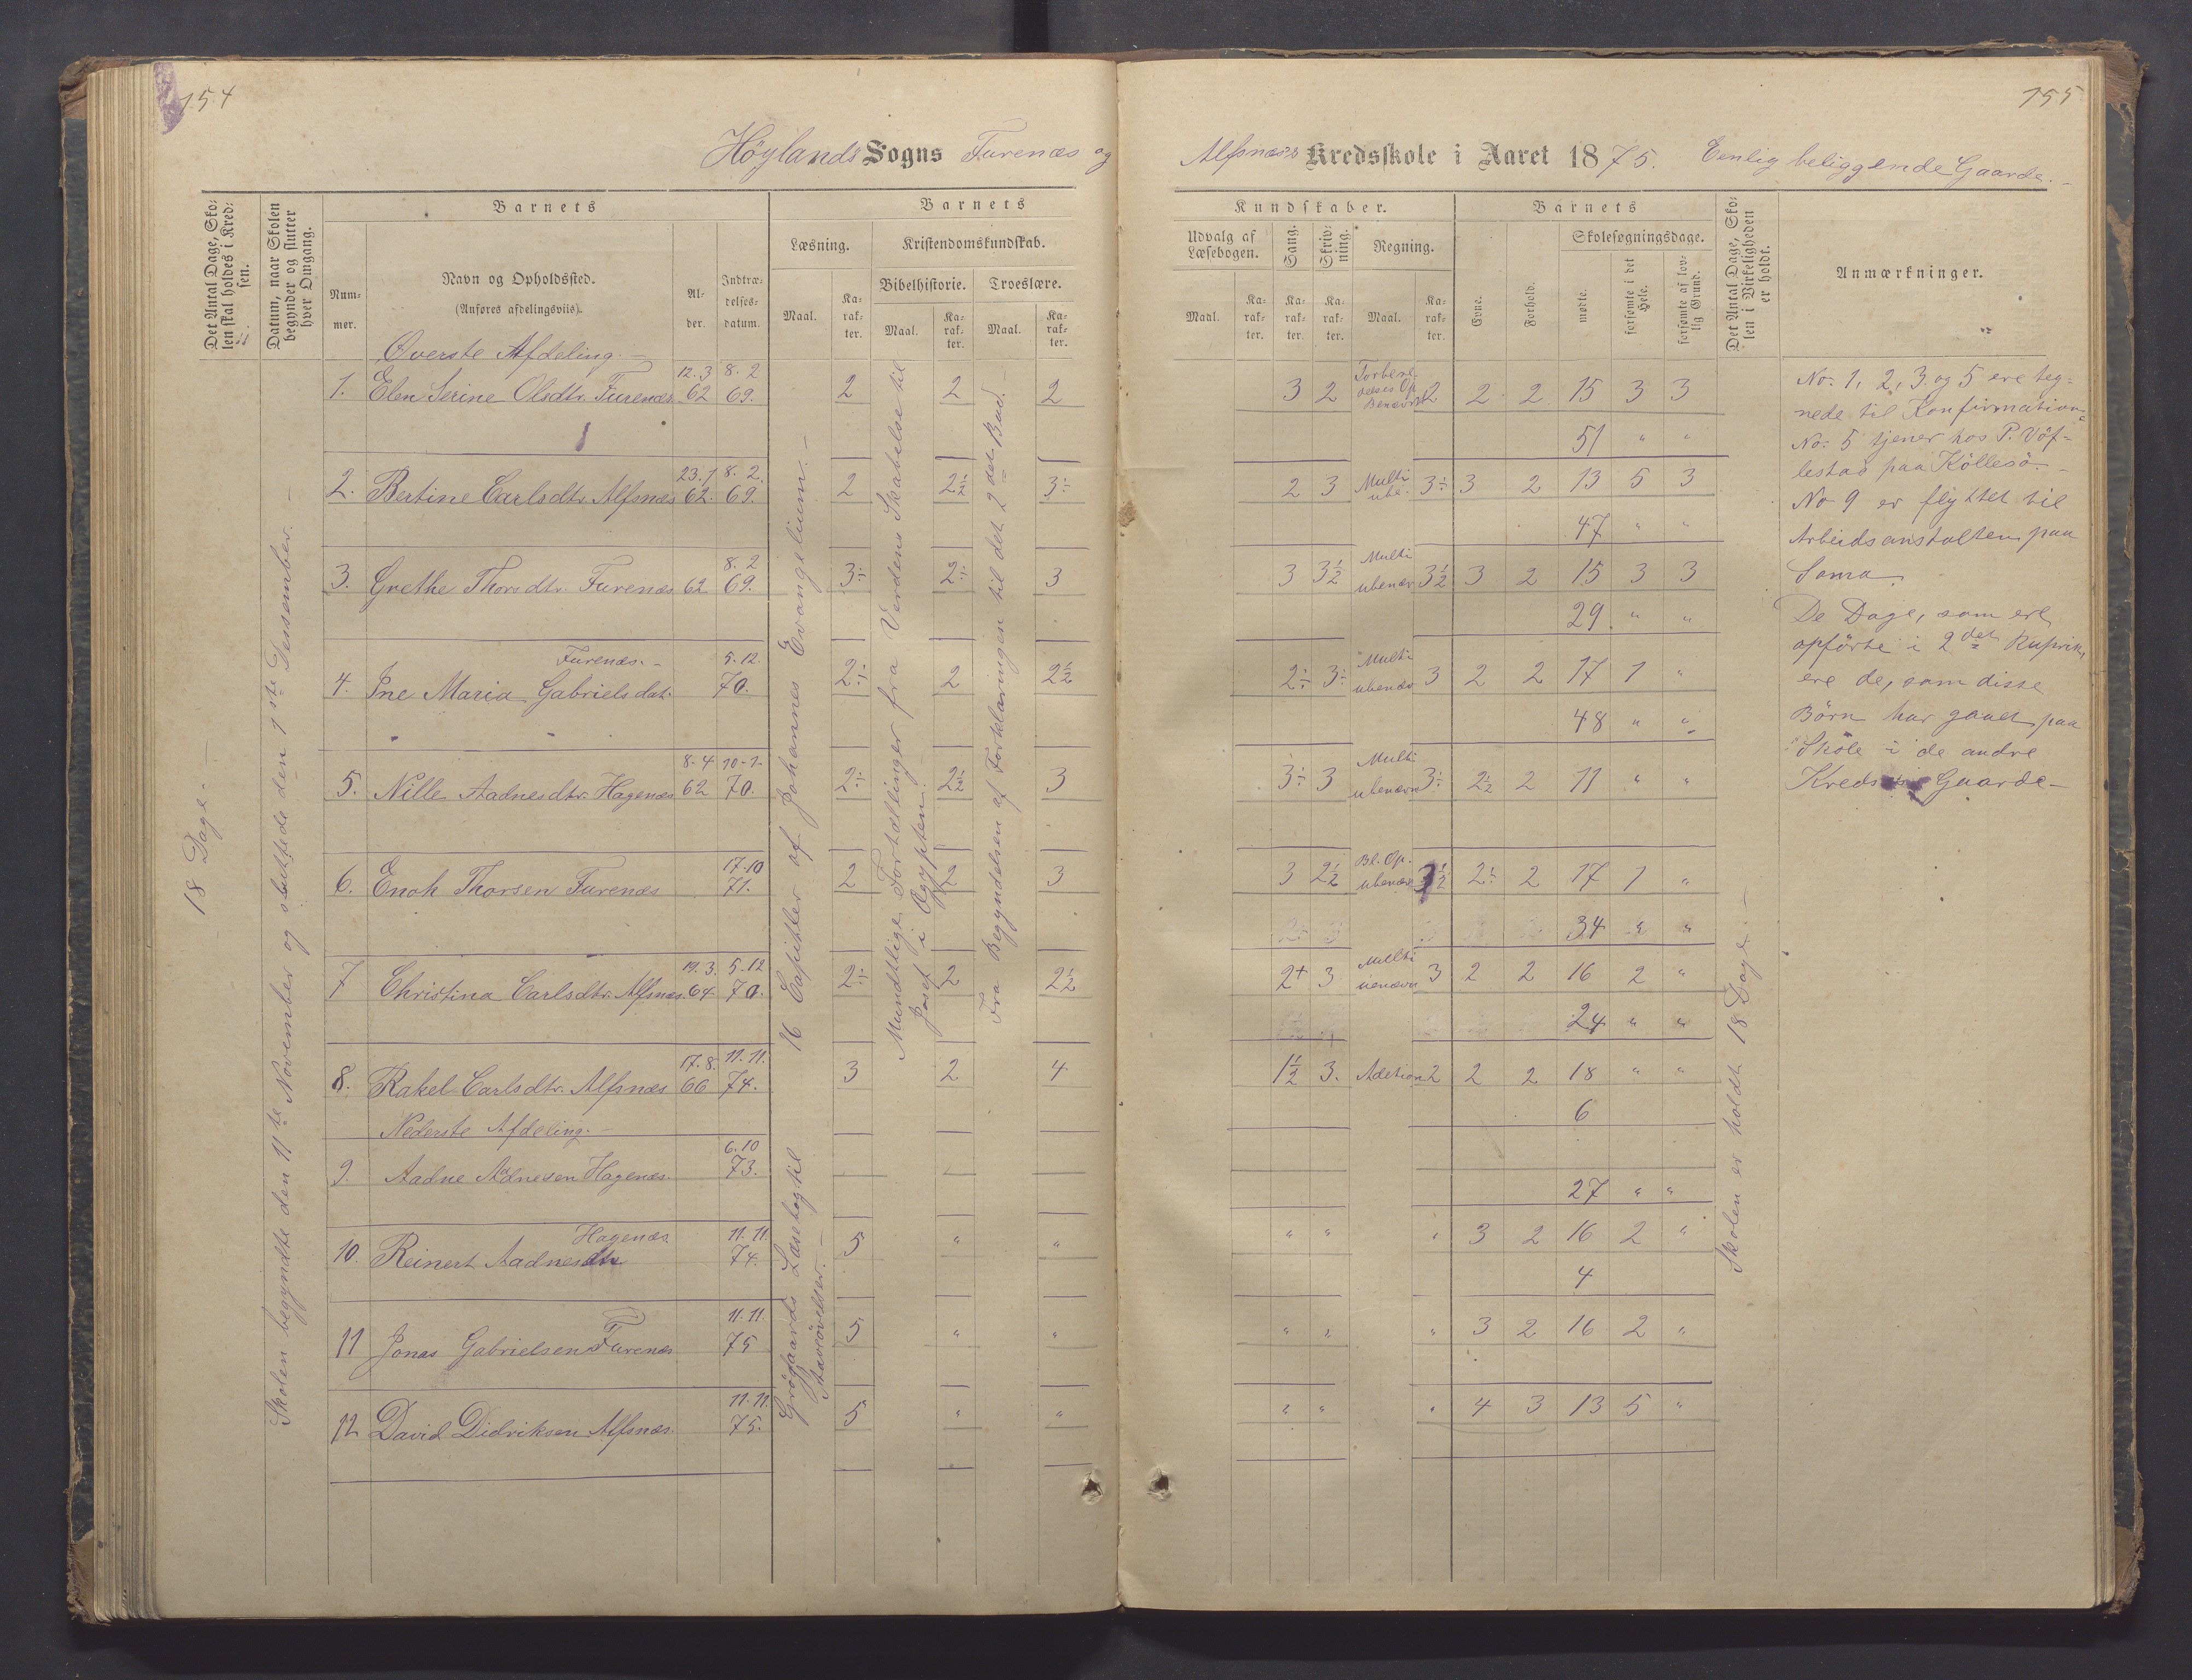 154
Höylands Sogns Furenæs og
Det Antal Dage, Sko-
len skal holdes i Kred-
sen.
Datum, naar Skolen
begynder og slutter
hver Omgang.
Barnets
Num-
mer.
Navn og Opholdssted.
(Anføres afdelingsviis).
Al-
der.
Indtræ-
delses-
datum.
Barnets
Læsning.
Maal.
Ka-
rak-
ter.
Kristendomskundskab.
Bibelhistorie.
Maal.
Ka-
rak-
ter.
Troeslære.
Maal.
Ka-
rak-
ter.
18 Dage. —
Skolen begyndte den 11te November og sluttede den 1ste Dessember. —
Överste Afdeling. —
1. Elen Serine Olsdtr. Furenæs 12.3 62 8.2 69. 2 2 2
2. Bertine Carlsdtr Alfsnæs 23.1 62. 8.2. 69. 2 2½ 3÷
3. Grethe Thorsdtr. Furenæs 62. 8.2 69. 3÷ 2÷ 3
Furenæs. —
4. Ine Maria Gabrielsdat. 5.12. 70. 2÷ 2 2½
5. Nille Aadnesdtr. Hagenæs 8.4 62 10.1. 70. 2÷ 2½ 3
6. Enoh Thorsen Furenæs 17.10 71. 2 2 3
7 Christina Carlsdtr. Alfsnæs. 19.3. 64 5.12 70. 2÷ 2 2½
8. Rakel Carlsdtr. Alfsnæs 17.8. 66 11.11. 74. 3 2 4
Nederste Afdeling.
9. Aadne Adnesen Hagenæs. 6.10 73.
Hagenæs
10. Reinert Aadnes 11.11. 74. 5 " "
11 Jonas Gabrielsen Furenæs 11.11. 75 5 " "
12 David Didriksen Alfsnæs. 11.11. 75. 5 " "
16 Capitler af Johannes Evangelium. —
Grögaards Læsebog til
Stavövelser. —
Mundtlige Fortællinger fra Verdens Skabelse til
Josef i Ægypten.
Fra Begyndelsen af Forklaringen til det 2det Bud. —
155
Alfsnæs's Kredsskole i Aaret 1875. Eenlig beliggende Gaarde. —
Kundskaber.
Udvalg af
Læsebogen.
Maal.
Ka-
rak-
ter.
Sang.
Ka-
rak-
ter.
Skriv-
ning.
Ka-
rak-
ter.
Regning.
Maal.
Ka-
rak-
ter.
Barnets
Evne.
Forhold.
Skolesøgningsdage.
mødte.
forsømte i det
Hele.
forsømte af lov-
lig Grund.
Det Antal Dage, Sko-
len i Virkeligheden
er holdt.
Anmærkninger.
3 2 2 2 2 15 3 3
51 " "
2 3 Multi 3÷ 3 2 13 5 3
47 " "
3 3½ Multi ubenæv 3½ 3 2 15 3 3
29. " "
2÷ 3÷ Multi ubenæv 3 2 2 17 1 "
48 " "
3÷ 3 Multi ubenævn 3÷ 2½ 2 11 " "
3 2½ Bl. Op. ubenæv ½ 2÷ 2 17 1 "
34 " "
2+ 3 Multi 3 2 2 16 2 "
24 " "
1½ 3. Adetion 2 2 2 18 " "
6
27 " "
" " " 3 2 16 2 "
4
" " " 3 2 16 2 "
" " " 4 3 13 5 "
Skolen er holdt 18 Dage. —
No. 1, 2, 3 og 5 ere teg-
nede til Konfirmation
No. 5 tjener hos P.
lestad paa
No 9 er flyttet til
Arbeidsanstalten paa
Soma.
De Dage, som ere
opförte i 2det Ruprik,
ere de, som disse
Börn har gaaet paa
Skole i de andre
Kreds Gaarde —